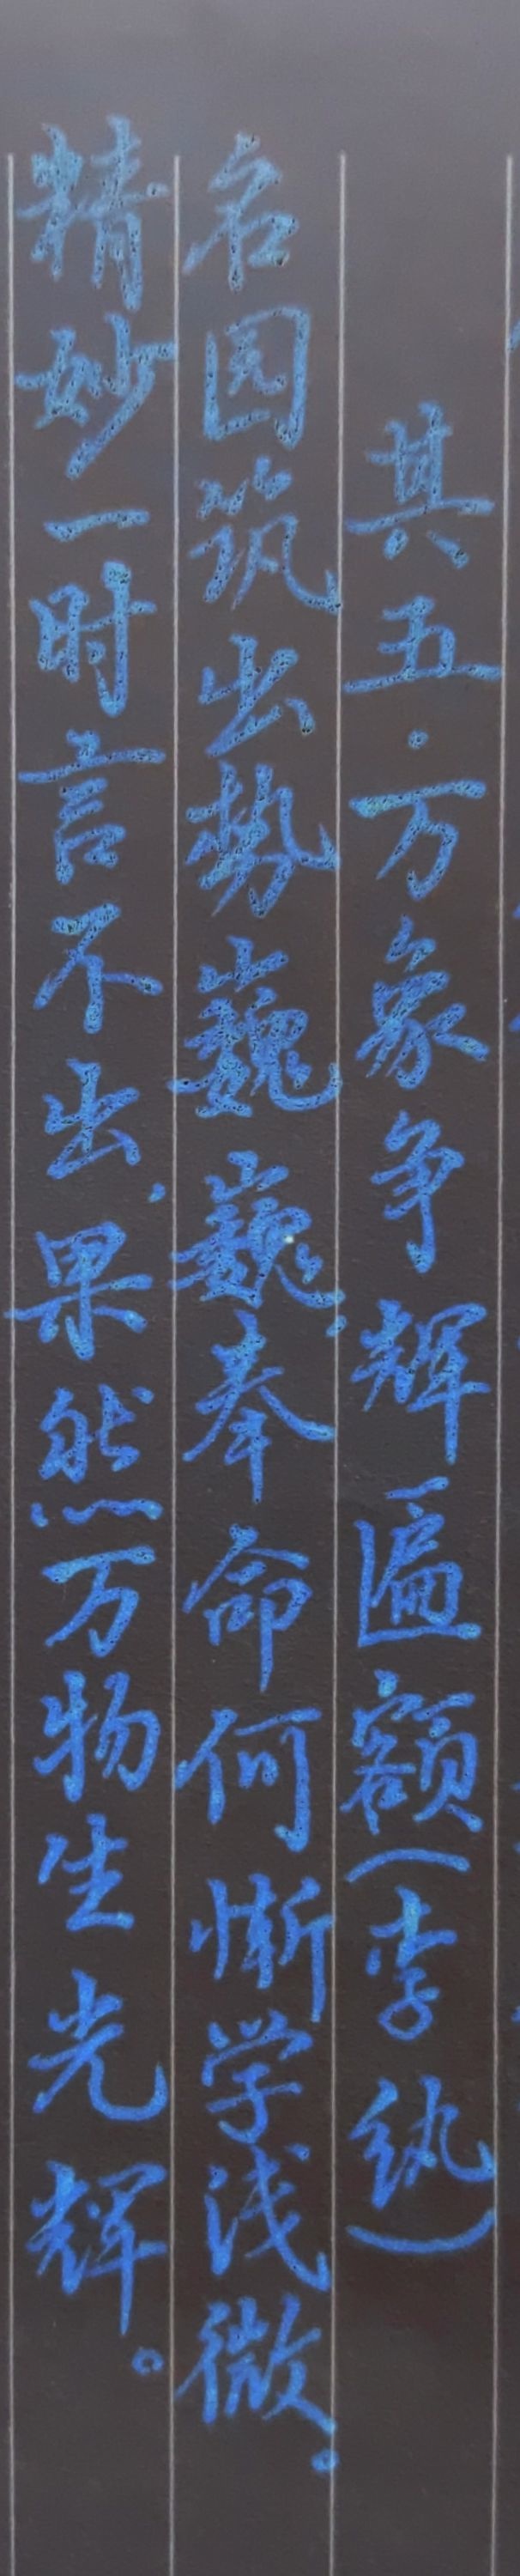 其五·万象争辉匾额(李纨)
名园筑出势巍巍,奉命何惭学浅微。
精妙一时言不出,果然万物生光辉。